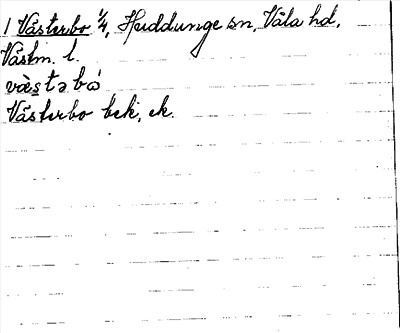 1 Västerbo 1/4, Huddunge sn, Våla hd,
Västm. l.
vàs̲təbó
Västerbo bek, ek.